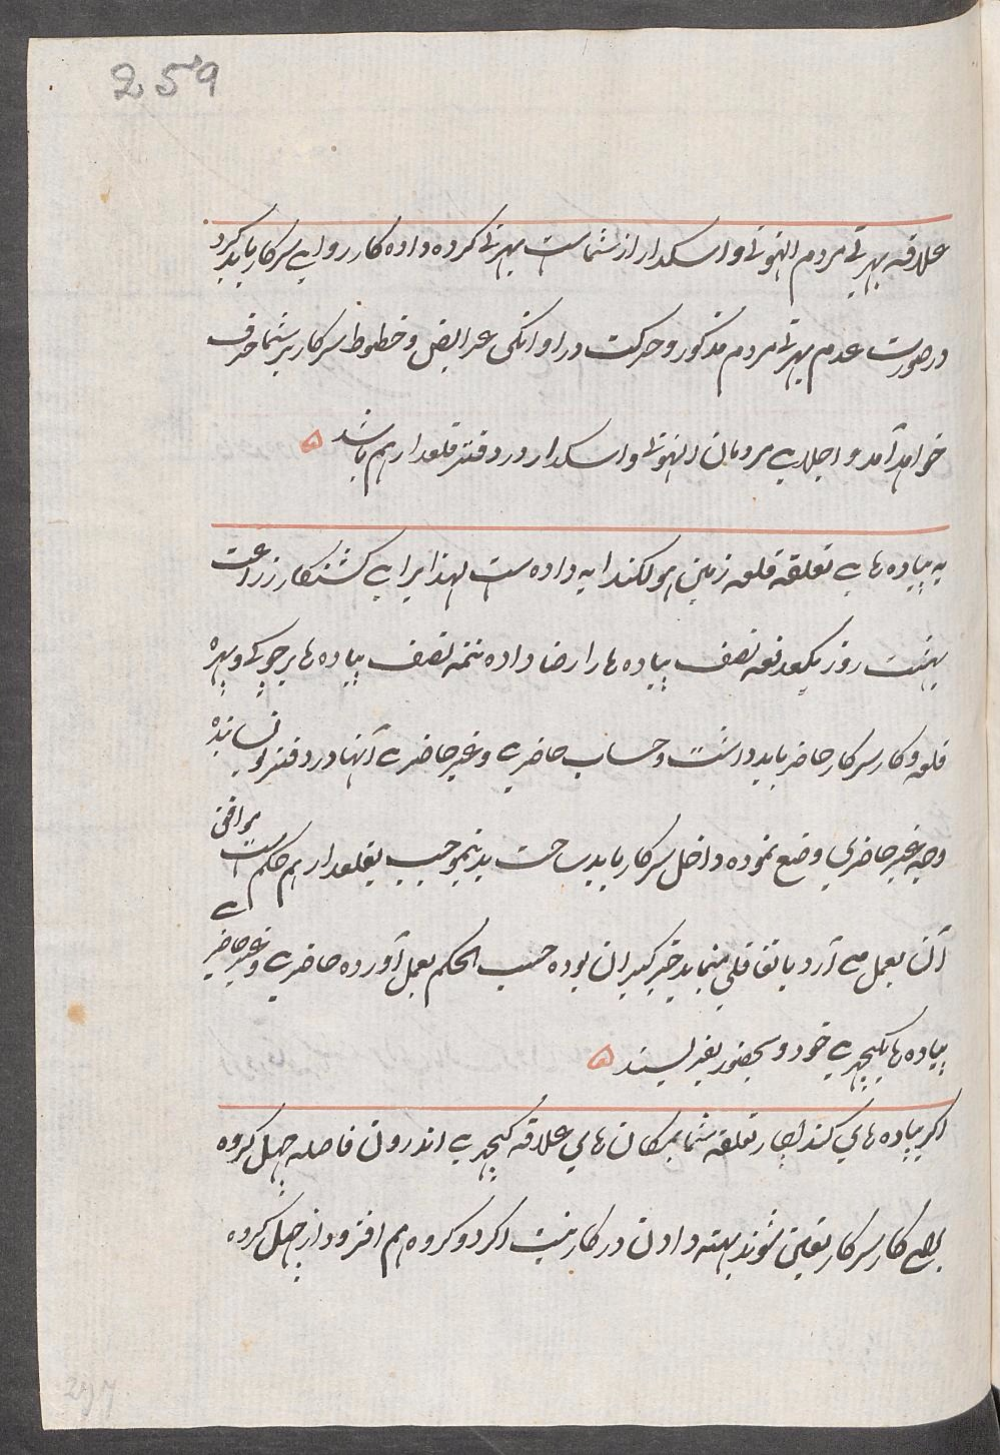 259
علاقه بهرتی مردم انهونی و اسکدار از شماست بهرتی کرده داده کار روایی سرکار باید کرد
در صورت عدم بهرتی مردم مذکور و حرکت در اوانکی عرایض و خطوط سرکار بر شما حرف
خواهد آمد و اجلایی مردمان انهونی و اسکدار در دفتر قلعدار هم باشد ۵
به پیاده هایی تعلقه قلعه زمین داده ست لهذا برایی کشتکار زراعت
روز یکدفعه نصف پیاده ها را رضا داده تتمه نصف پیاده ها بر چوکی و پهره
قلعه و کار سرکار حاضر باید داشت و حساب حاضری و غیر حاضری آنها در دفتر نویسانده
وجه غیر حاضری وضع نموده داخل سرکار باید ساخت بدینموجب بقلعدار هم حکم است موافق
آن بعمل می آرد یا تغافلی مینماید خبر گیران بوده حسب الحکم بعمل آورده حاضری و غیر حاضری
پیاده ها بکچهری خود و بحضور بنویسند ۵
اگر پیاده های کنداچار تعلقه شما بمکان های علاقه کچهری اندرون فاصله چهل کروه
برای کار سرکار تعین شوند بهته دادن درکار نیست اگر دو کروه هم افزود از چهل کروه
297